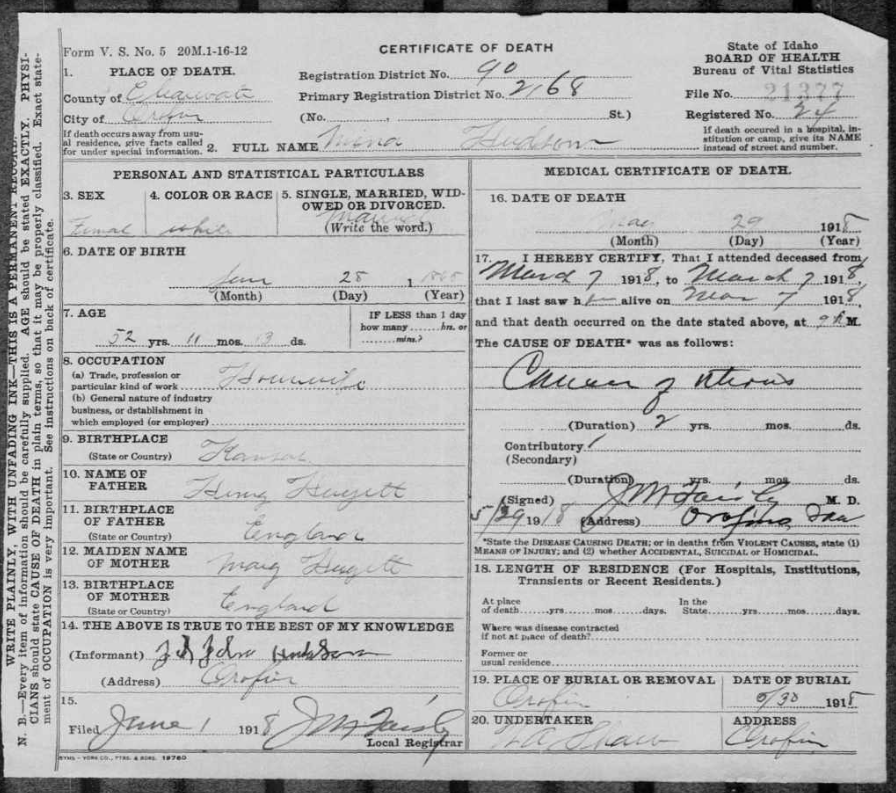 Form V. S. No. 5 20M.1-16-12
CERTIFICATE OF DEATH
State of Idaho
BOARD OF HEALTH
Bureau of Vital Statistics
1. PLACE OF DEATH.
County of Clearwater
City of Orofino
Registration District No. 90
Primary Registration District No. 2168
(No. St.)
File No. 21377
Registered No. 24
If death occurs away from usu-
al residence, give facts called
for under special information.
2. FULL NAME Mina Hudson
If death occured in a hospital, in-
stitution or camp, give its NAME
instead of street and number.
PERSONAL AND STATISTICAL PARTICULARS
3. SEX
Femal
4. COLOR OR RACE
white
5. SINGLE, MARRIED, WID-
OWED OR DIVORCED.
Married
(Write the word.)
6. DATE OF BIRTH
28 1
(Month) (Day) (Year)
7. AGE
52 yrs. 11 mos. 13 ds.
IF LESS than 1 day
how many hrs. or
mins.?
8. OCCUPATION
(a) Trade, profession or
particular kind of work Housewife
(b) General nature of industry
business, or dstablishment in
which employed (or employer)
9. BIRTHPLACE
(State or Country) Kansas
10. NAME OF
FATHER Henry Hugett
11. BIRTHPLACE
OF FATHER
(State or Country) England
12. MAIDEN NAME
OF MOTHER Mary Hugett
13. BIRTHPLACE
OF MOTHER
(State or Country) England
14. THE ABOVE IS TRUE TO THE BEST OF MY KNOWLEDGE
(Informant) Hudson
(Address) Orofino
15.
Filed June 1 1918 J M Fairly
Local Registrar
SYMS - YORK CO., PTRS. & BDRS. 19760
MEDICAL CERTIFICATE OF DEATH.
16. DATE OF DEATH
May 29 1918
(Month) (Day) (Year)
17. I HEREBY CERTIFY, That I attended deceased from
March 7 1918, to March 7 1918,
that I last saw her alive on Mar 7 1918,
and that death occurred on the date stated above, at 9 M.
The CAUSE OF DEATH* was as follows:
Cancer of uterus
(Duration) 2 yrs. mos. ds.
Contributory
(Secondary)
(Duration) yrs. mos. ds.
(Signed) J M Fairly M. D.
5/29 1918 (Address) Orofino Ida
*State the DISEASE CAUSING DEATH; or in deaths from VIOLENT CAUSES, state (1)
MEANS OF INJURY; and (2) whether ACCIDENTAL, SUICIDAL or HOMICIDAL.
18. LENGTH OF RESIDENCE (For Hospitals, Institutions,
Transients or Recent Residents.)
At place
of death yrs mos days.
In the
State yrs mos days.
Where was disease contracted
if not at place of death?
Former or
usual residence
19. PLACE OF BURIAL OR REMOVAL
Orofino
DATE OF BURIAL
5/30 1918
20. UNDERTAKER
ADDRESS
Orofino
N. B.—Every item of information should be carefully supplied. AGE should be stated EXACTLY. PHYSI-
CIANS should state CAUSE OF DEATH in plain terms, so that it may be properly classified. Exact state-
ment of OCCUPATION is very important. See instructions on back of certificate.
WRITE PLAINLY, WITH UNFADING INK—THIS IS A PERMANENT RECORD.